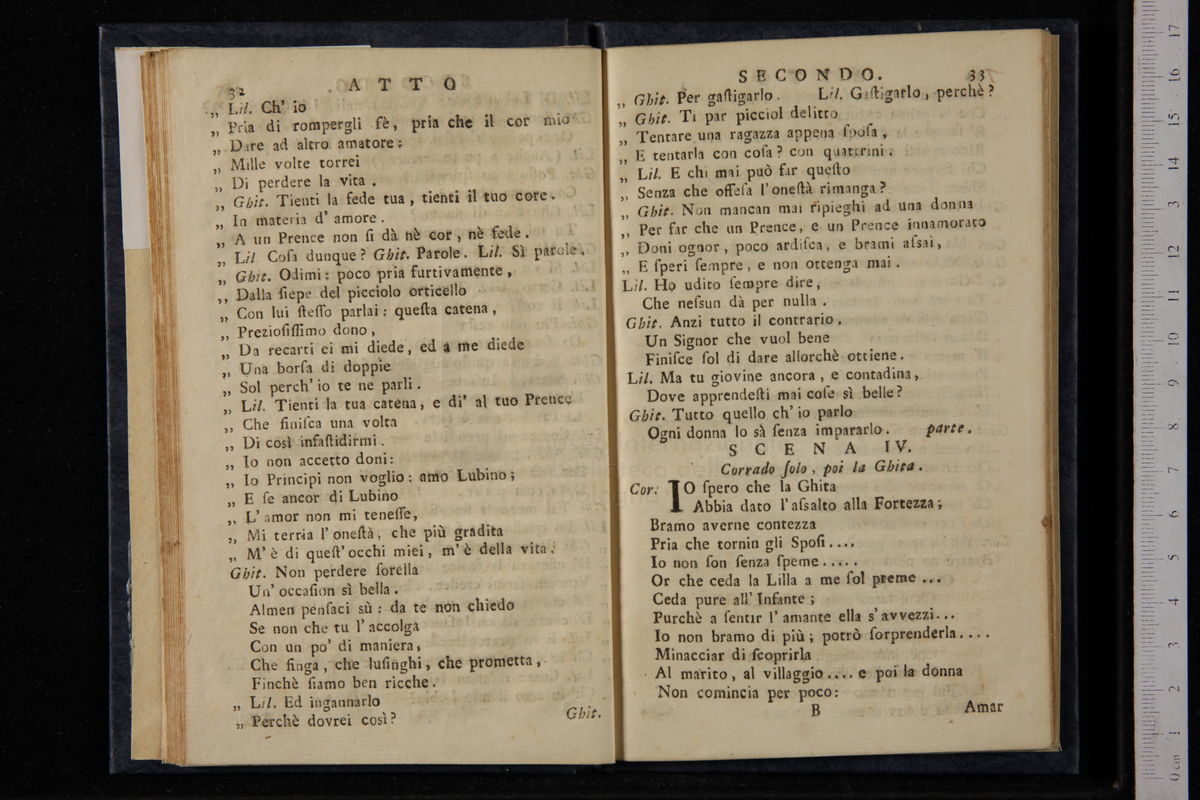 32 A T T O
„ Lil. Ch' io
„ Pria di rompergli fè, pria che il cor mio
„ Dare ad altro amatore:
„ Mille volte torrei
„ Di perdere la vita .
„ Ghit. Tienti la fede tua , tienti il tuo core.
„ In materia d' amore .
„ A un Prence non ſi dà nè cor , nè fede .
„ Lil Coſa dunque ? Ghit. Parole . Lil. Sì parole.
„ Ghit. Odimi : poco pria furtivamente ,
„ Dalla ſiepe del picciolo orticello
„ Con lui ſteſſo parlai : queſta catena ,
„ Prezioſiſſimo dono ,
„ Da recarti ei mi diede , ed a me diede
„ Una borſa di doppie
„ Sol perch' io te ne parli .
„ Lil. Tienti la tua catena , e di' al tuo Prence
„ Che finiſca una volta
„ Di così infaſtidirmi .
„ Io non accetto doni :
„ Io Principi non voglio : amo Lubino ;
„ E ſe ancor di Lubino
„ L' amor non mi teneſſe,
„ Mi terria l' oneſtà, che più gradita
„ M' è di queſt' occhi miei , m' è della vita .
Ghit. Non perdere ſorella
Un' occaſion sì bella .
Almen penſaci sù : da te non chiedo
Se non che tu l' accolga
Con un po' di maniera ,
Che finga , che luſinghi , che prometta ,
Finchè ſiamo ben ricche .
„ Lil. Ed ingannarlo
„ Perchè dovrei così ?
Ghit.
SECONDO. 33
„ Ghit. Per gaſtigarlo . Lil. Gaſtigarlo , perchè ?
„ Ghit. Ti par picciol delitto
„ Tentare una ragazza appena ſpoſa ,
„ E tentarla con coſa ? con quattrini .
„ Lil. E chi mai può far queſto
„ Senza che offeſa l' oneſtà rimanga ?
„ Ghit. Non mancan mai ripieghi ad una donna
„ Per far che un Prence , e un Prence innamorato
„ Doni ognor , poco ardiſca , e brami aſsai ,
„ E ſperi ſempre , e non ottenga mai .
Lil. Ho udito ſempre dire ,
Che neſsun dà per nulla .
Ghit. Anzi tutto il contrario .
Un Signor che vuol bene
Finiſce ſol di dare allorchè ottiene .
Lil. Ma tu giovine ancora , e contadina ,
Dove apprendeſti mai coſe sì belle ?
Ghit. Tutto quello ch' io parlo
Ogni donna lo sà ſenza impararlo . parte.
S C E N A IV.
Corrado ſolo , poi la Ghita .
Cor. IO ſpero che la Ghita
Abbia dato l' aſsalto alla Fortezza ;
Bramo averne contezza
Pria che tornin gli Spoſi ....
Io non ſon ſenza ſpeme .....
Or che ceda la Lilla a me ſol preme ...
Ceda pure all' Infante ;
Purchè a ſentir l' amante ella s' avvezzi...
Io non bramo di più ; potrò ſorprenderla ....
Minacciar di ſcoprirla
Al marito , al villaggio .... e poi la donna
Non comincia per poco :
B Amar
0 cm 1 2 3 4 5 6 7 8 9 10 11 12 13 14 15 16 17